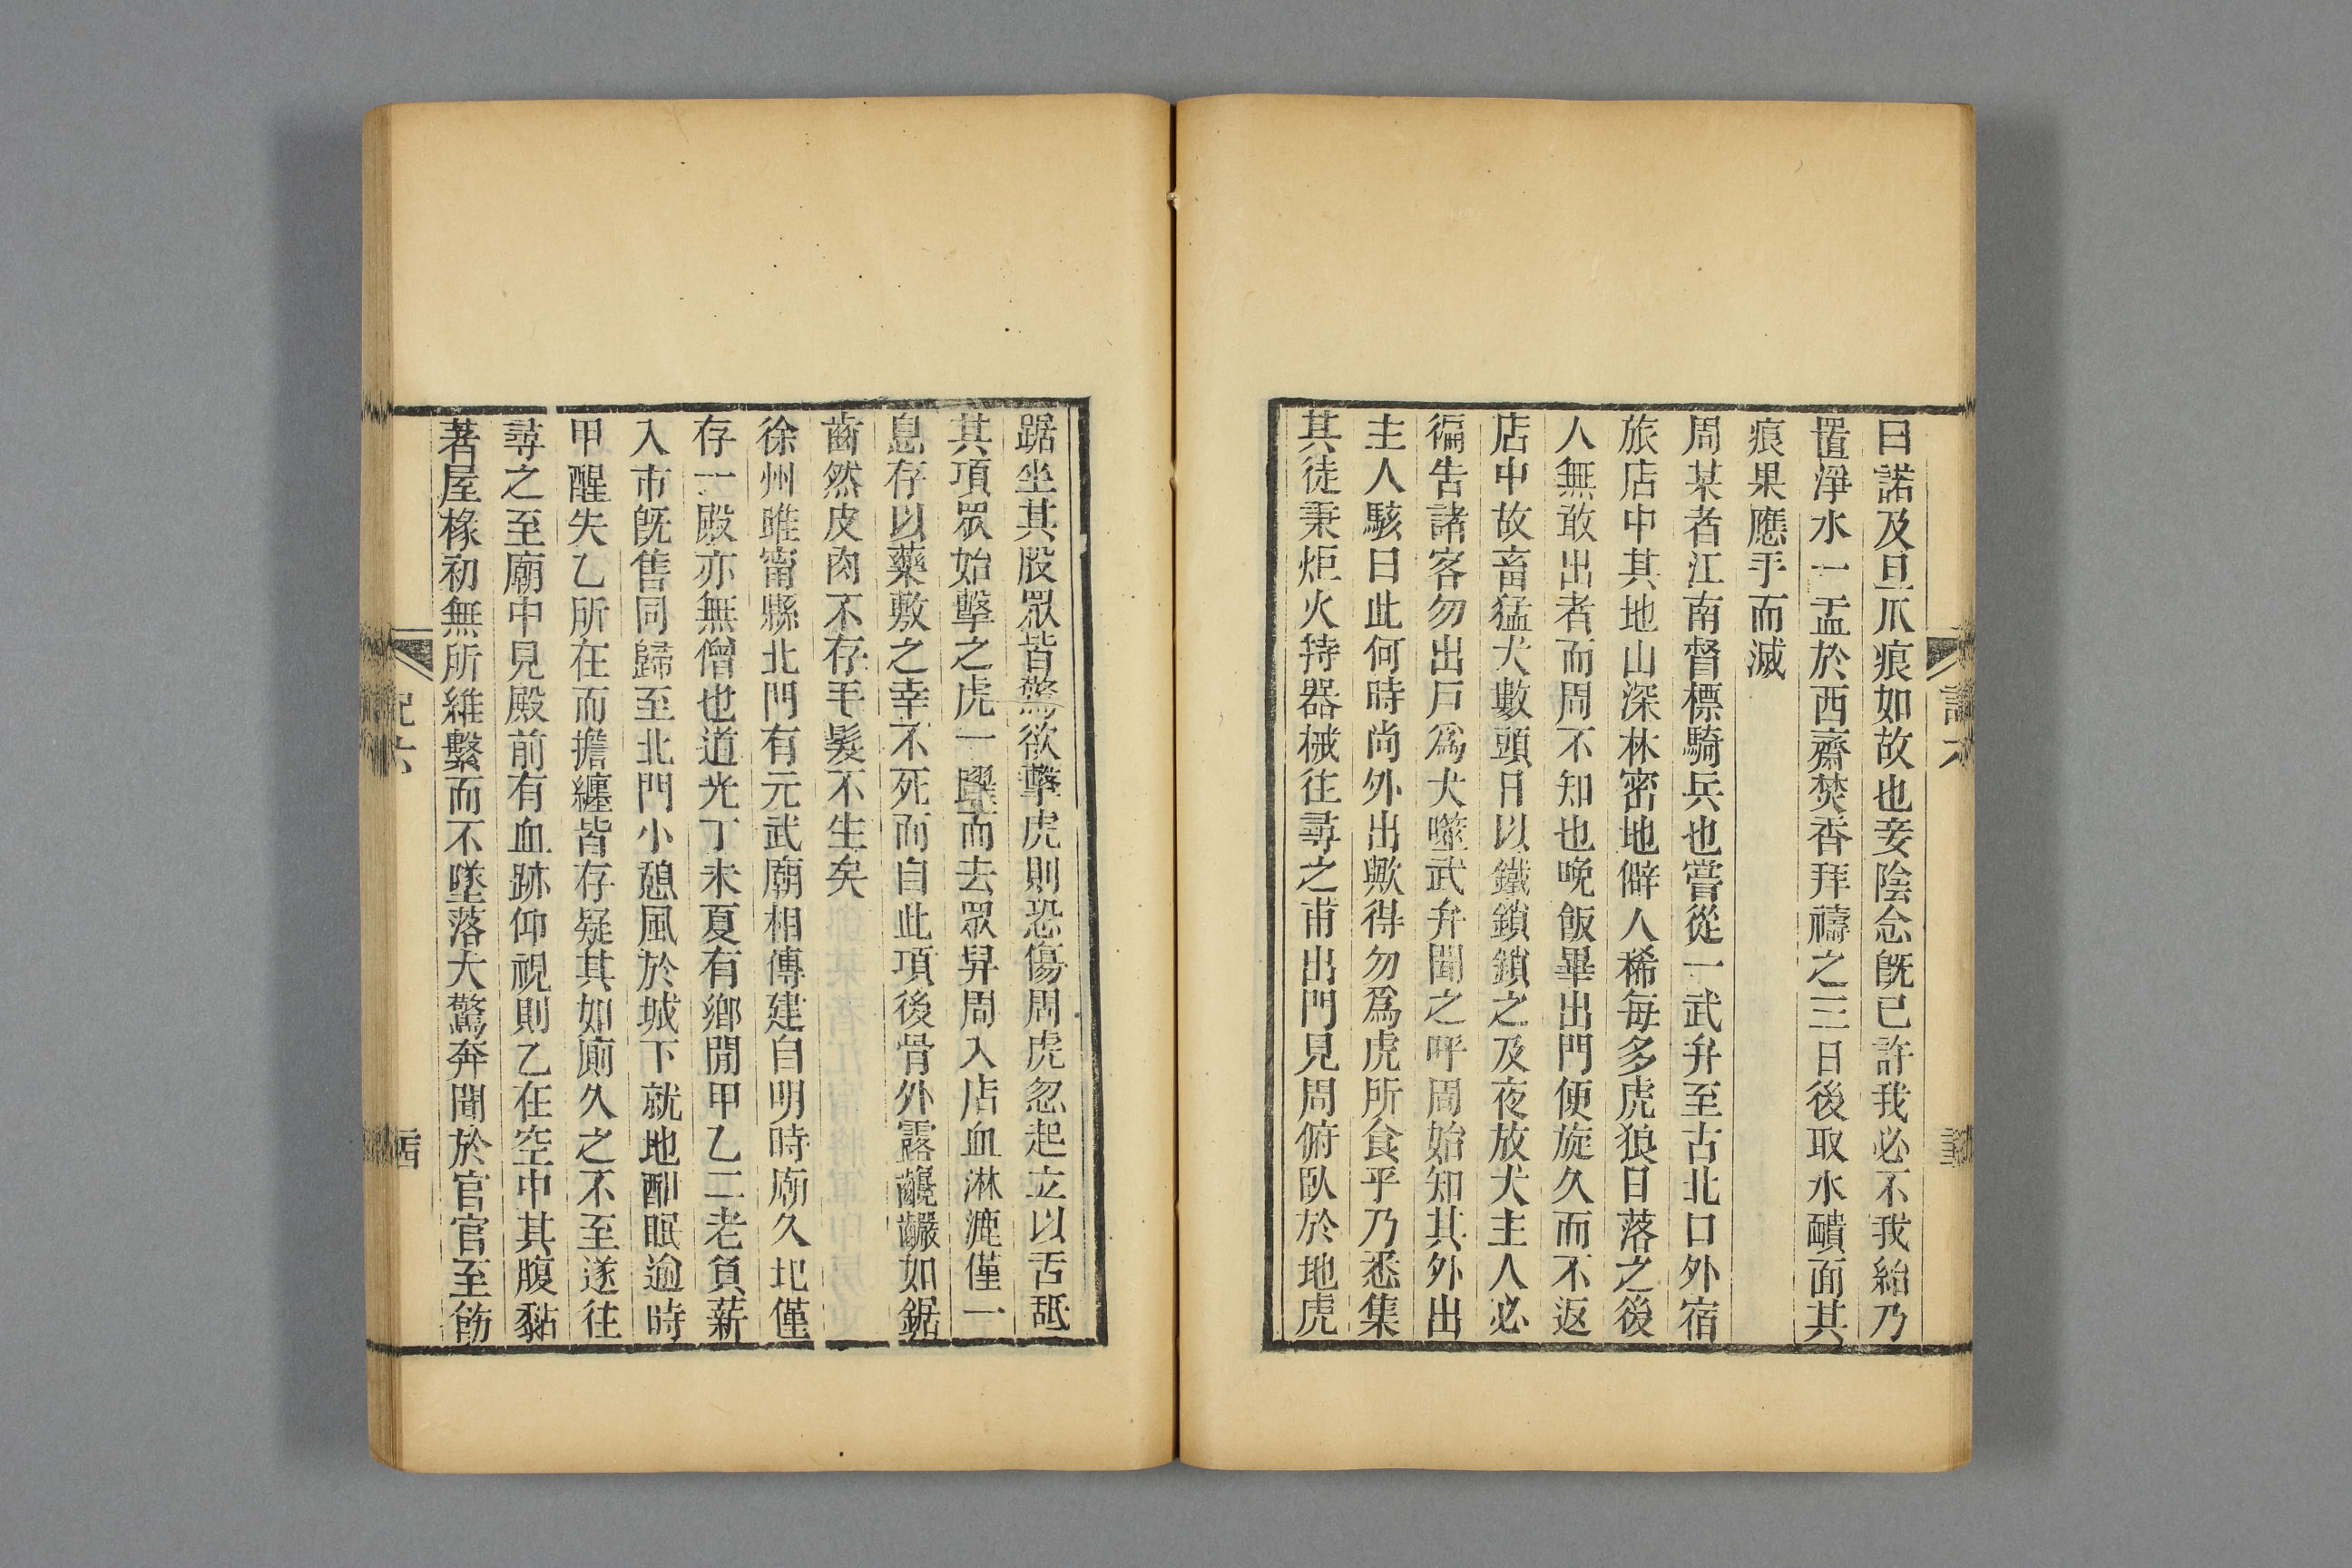 曰諾及旦爪痕如故也妾陰念旣已許我必不我紿乃
置淨水一盂於西齋焚香拜禱之三日後取水靧面其
痕果應手而滅
周某者江南督標騎兵也嘗從一武弁至古北口外宿
旅店中其地山深林密地僻人稀每多虎狼日落之後
人無敢出者而周不知也晚飯畢出門便旋久而不返
店中故畜猛犬數頭日以鐵鎖鎖之及夜放犬主人必
徧告諸客勿出戸爲犬噬武弁聞之呼周始知其外出
主人駭曰此何時尚外出歟得勿爲虎所食乎乃悉集
其徒秉炬火持器械往尋之甫出門見周俯臥於地虎
踞坐其股眾皆驚欲擊虎則恐傷周虎忽起立以舌舐
其項眾始擊之虎一躍而去眾舁周入店血淋漉僅一
息存以藥敷之幸不死而自此項後骨外露巉巖如鋸
齒然皮肉不存毛髮不生矣
徐州睢甯縣北門有元武廟相傳建自明時廟久圮僅
存一殿亦無僧也道光丁未夏有鄉閒甲乙二老負薪
入市旣售同歸至北門小憩風於城下就地酣眠逾時
甲醒失乙所在而擔纏皆存疑其如廁久之不至遂往
尋之至廟中見殿前有血跡仰視則乙在空中其腹黏
著屋椽初無所維繫而不墜落大驚奔聞於官官至飭